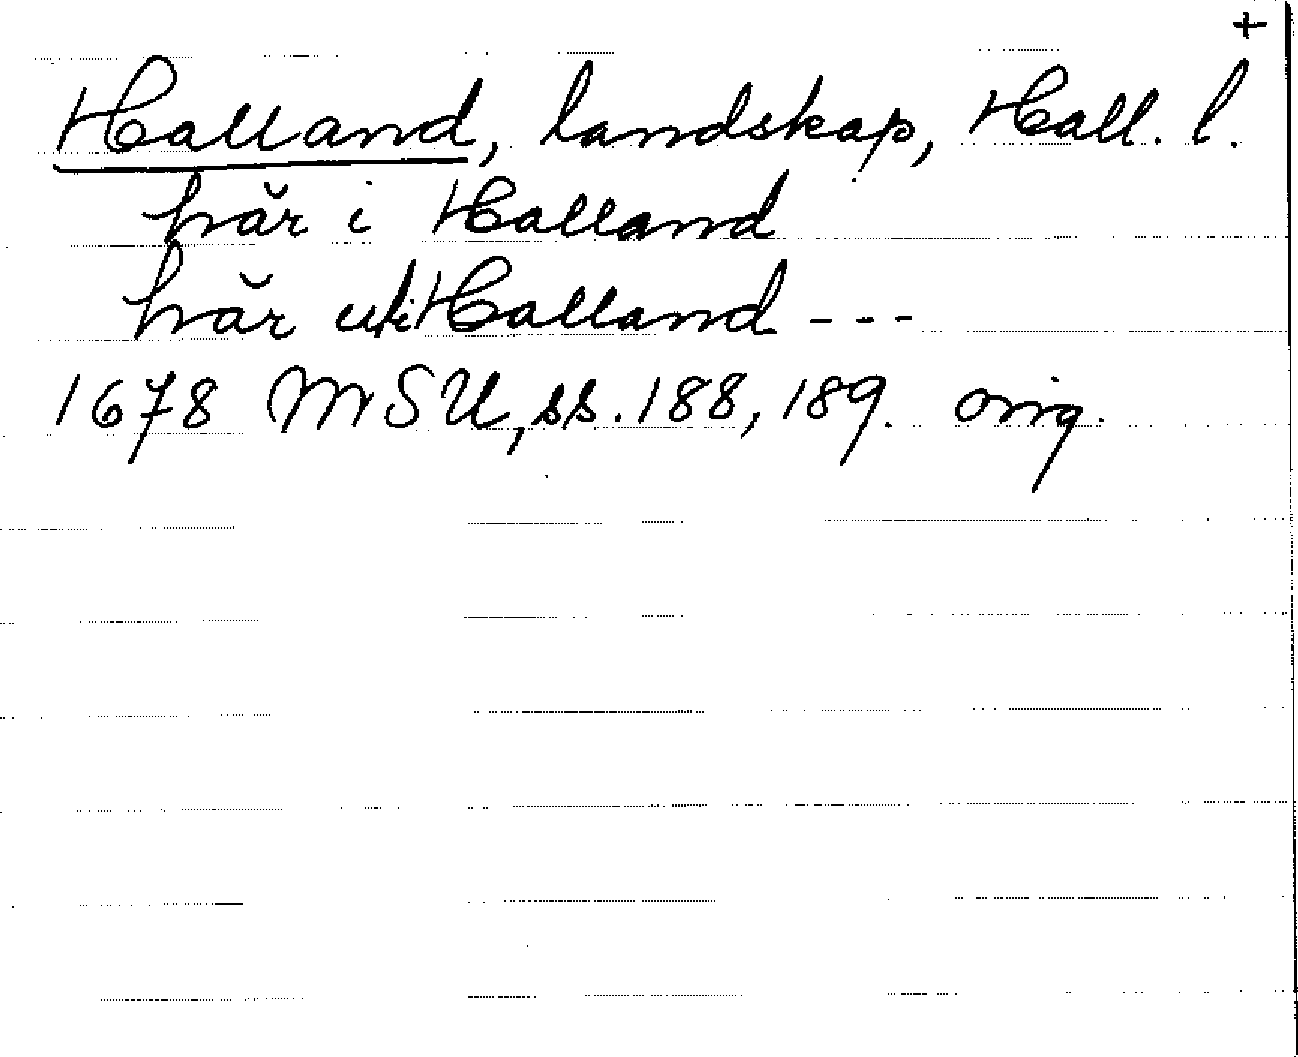 +
Halland, landskap, Hall. l.
här i Halland
här uti Halland - - -
1678 MSU, ss. 188, 189. orig.